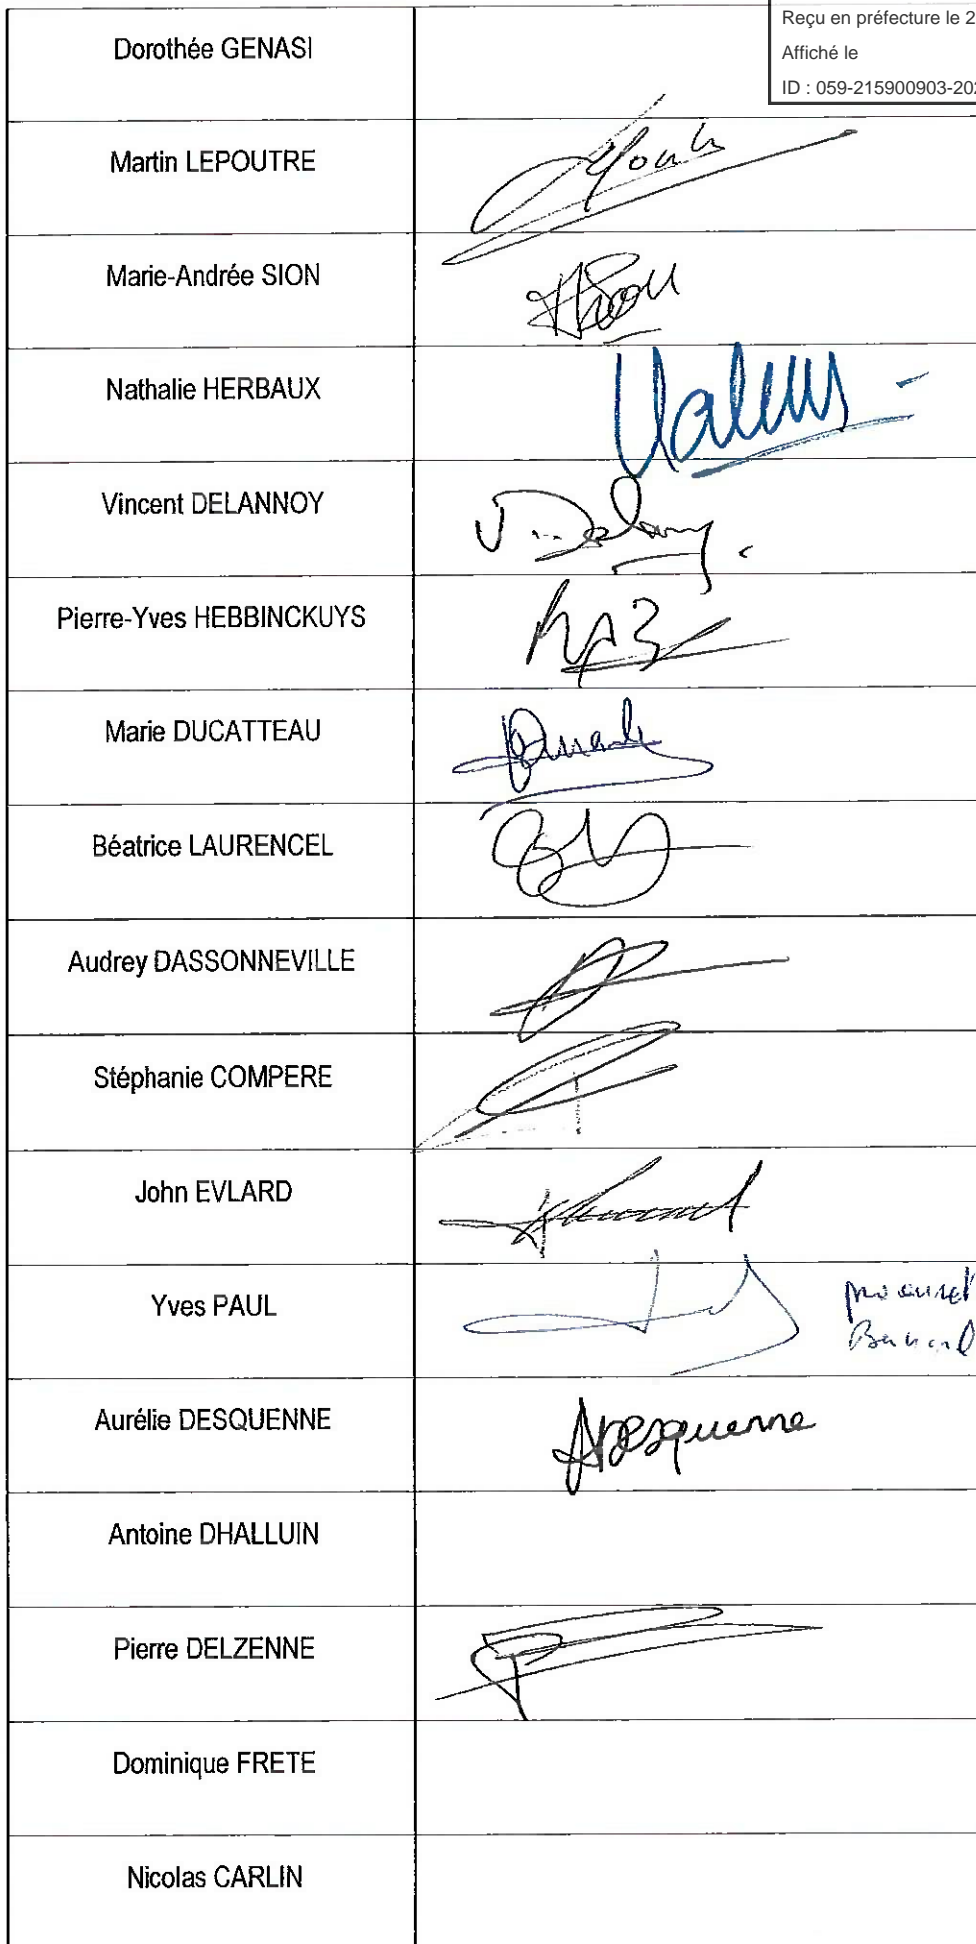 Reçu en préfecture le 2
Affiché le
ID : 059-215900903-202
Dorothée GENASI
Martin LEPOUTRE
Marie-Andrée SION
Nathalie HERBAUX
Vincent DELANNOY
Pierre-Yves HEBBINCKUYS
Marie DUCATTEAU
Béatrice LAURENCEL
Audrey DASSONNEVILLE
Stéphanie COMPERE
John EVLARD
Yves PAUL
Aurélie DESQUENNE
ADesquenne
Antoine DHALLUIN
Pierre DELZENNE
Dominique FRETE
Nicolas CARLIN